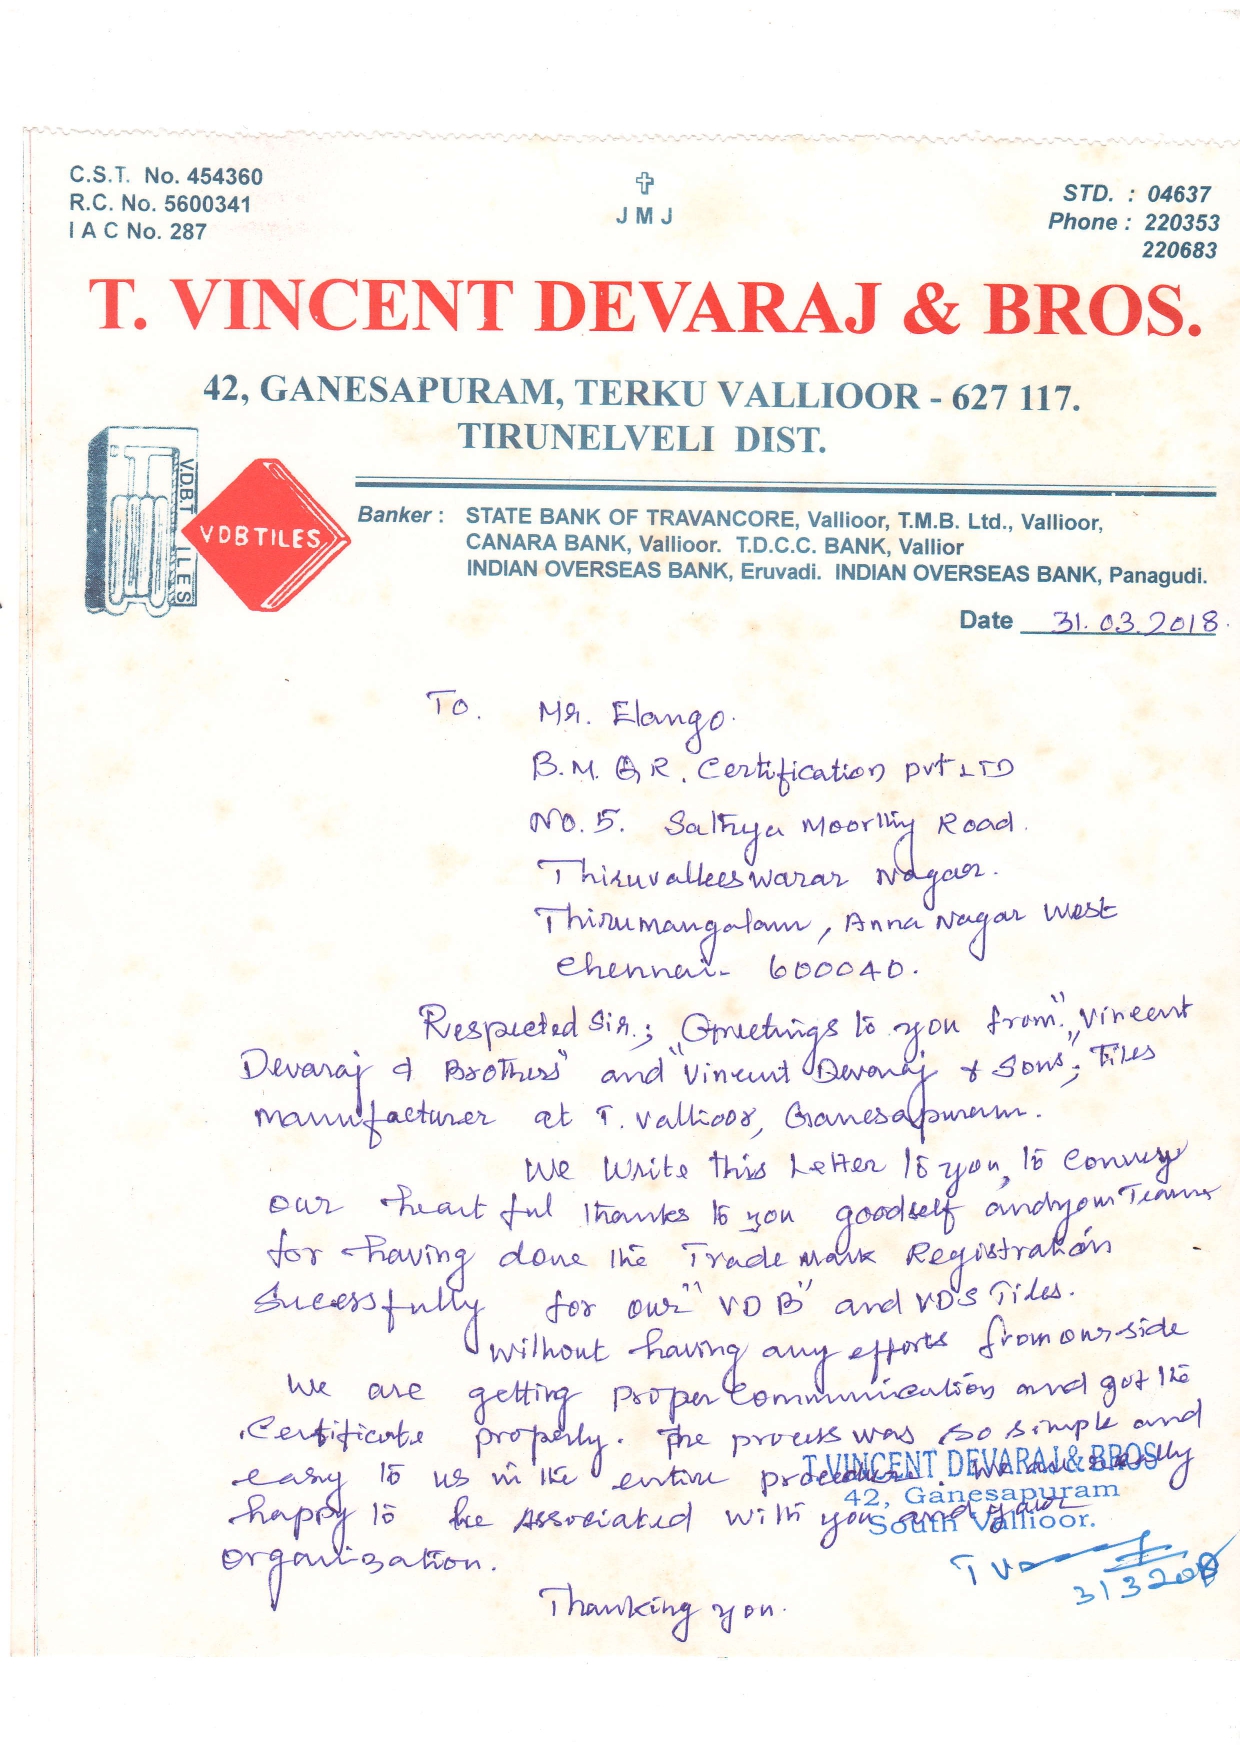 C.S.T. No. 454360
R.C. No. 5600341
I A C No. 287
J M J
STD. : 04637
Phone : 220353
220683
T. VINCENT DEVARAJ & BROS.
42, GANESAPURAM, TERKU VALLIOOR - 627 117.
TIRUNELVELI DIST.
V.D.B.T ILES
VDBTILES
Banker : STATE BANK OF TRAVANCORE, Vallioor, T.M.B. Ltd., Vallioor,
CANARA BANK, Vallioor. T.D.C.C. BANK, Vallior
INDIAN OVERSEAS BANK, Eruvadi. INDIAN OVERSEAS BANK, Panagudi.
Date 31.03.2018.
To. Mr. Elango.
B.M.Q.R. Certification pvt LTD
No. 5. Sathya Moorthy Road.
Thiruvalleeswarar Nagar.
Thirumangalam, Anna Nagar West
Chennai- 600040.
Respected Sir.; Greetings to you from "Vincent
Devaraj & Brothers" and "Vincent Devaraj & Sons"; Tiles
manufacturer at T. Vallioor, Ganesapuram.
We Write this Letter to you, to convey
our heartful thanks to you goodself and your Teams
for having done the Trade mark Registration
Sucessfully for our "VDB" and VDS Tiles.
Without having any efforts from our side
We are getting proper communication and got the
Certificate properly. The process was so simple and
easy to us in the entire procedure. We are really
happy to be Associated with you and your
organization.
Thanking you.
T.VINCENT DEVARAJ & BROS
42, Ganesapuram
South Vallioor.